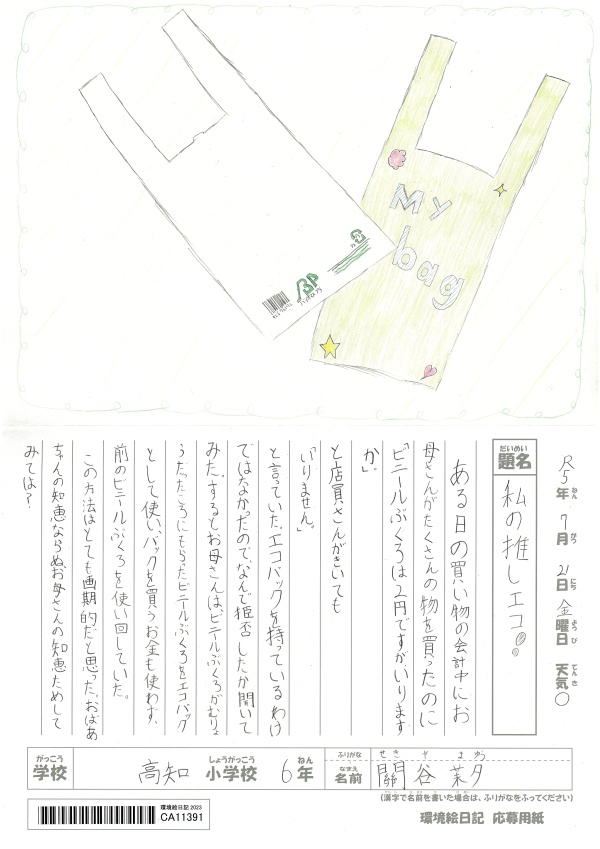 My
bag
R5年 7月 21日 金曜日 天気○
ねん がつ にち ようび てんき
だいめい
題名
私の推しエコ!!
ある日の買い物の会計中にお
母さんがたくさんの物を買ったのに
「ビニールぶくろは2円ですが、いります
か」
と店員さんがきいても
「いりません。」
と言っていた。エコバックを持っているわけ
ではなかったので、なんで拒否したか聞いて
みた。するとお母さんは、ビニールぶくろがむりょ
うだったころにもらったビニールぶくろをエコバッグ
として使い、バックを買うお金も使わず、
前のビニールぶくろを使い回していた。
この方法はとても画期的だと思った。おばあ
ちゃんの知恵ならぬ、お母さんの知恵ためして
みては?
がっこう しょうがっこう ねん
学校 高知 小学校 6年
ふりがな せき や ま ゆう
なまえ
名前 關 谷 茉夕
(漢字で名前を書いた場合は、ふりがなをふってください)
環境絵日記2023
CA11391
環境絵日記 応募用紙